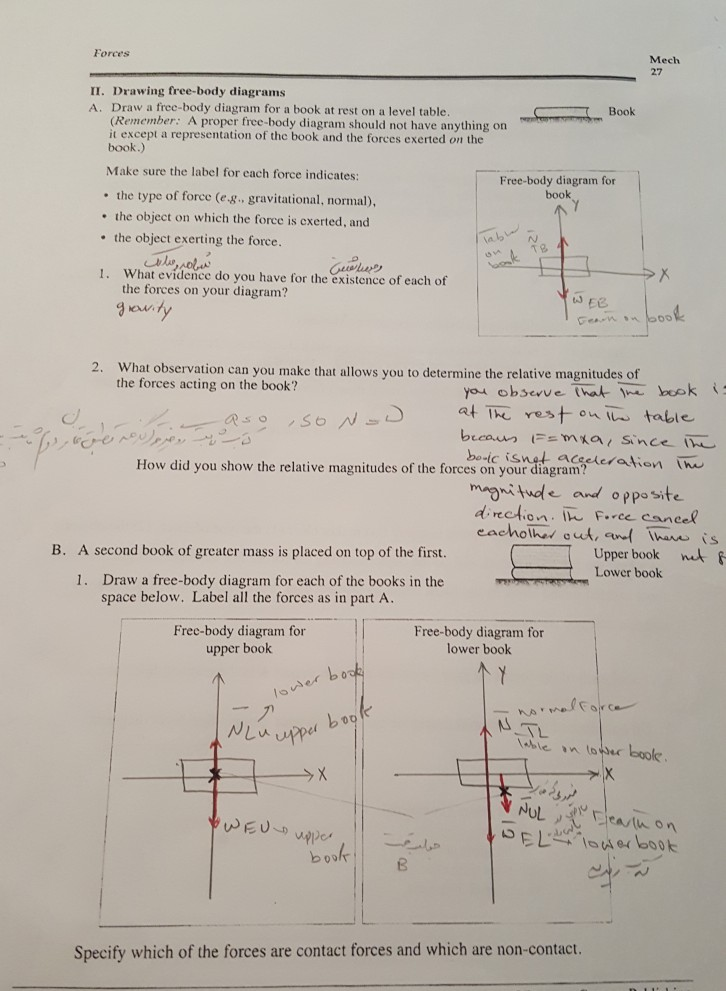 Forces
Mech
27
II. Drawing free-body diagrams
A. Draw a free-body diagram for a book at rest on a level table.
(Remember: A proper free-body diagram should not have anything on
it except a representation of the book and the forces exerted on the
book.)
Book
Make sure the label for each force indicates:
• the type of force (e.g., gravitational, normal),
• the object on which the force is exerted, and
• the object exerting the force.
Free-body diagram for
book
Y
Table
on
book
N TB
X
W EB
Earth on book
1. What evidence do you have for the existence of each of
the forces on your diagram?
gravity
2. What observation can you make that allows you to determine the relative magnitudes of
the forces acting on the book?
you observe that the book is
at the rest on the table
becaus F=mxa, since the
book is not acceleration the
magnitude and opposite
direction. The Force cancel
eachother out, and there is
net
a=0, so N=
How did you show the relative magnitudes of the forces on your diagram?
B. A second book of greater mass is placed on top of the first.
Upper book
Lower book
1. Draw a free-body diagram for each of the books in the
space below. Label all the forces as in part A.
Free-body diagram for
upper book
lower book
NLu upper book
X
WEU upper
book
Free-body diagram for
lower book
Y
normal Force
N TL
Table on lower book.
X
NUL
W EL
Earth on
lower book
B
Specify which of the forces are contact forces and which are non-contact.